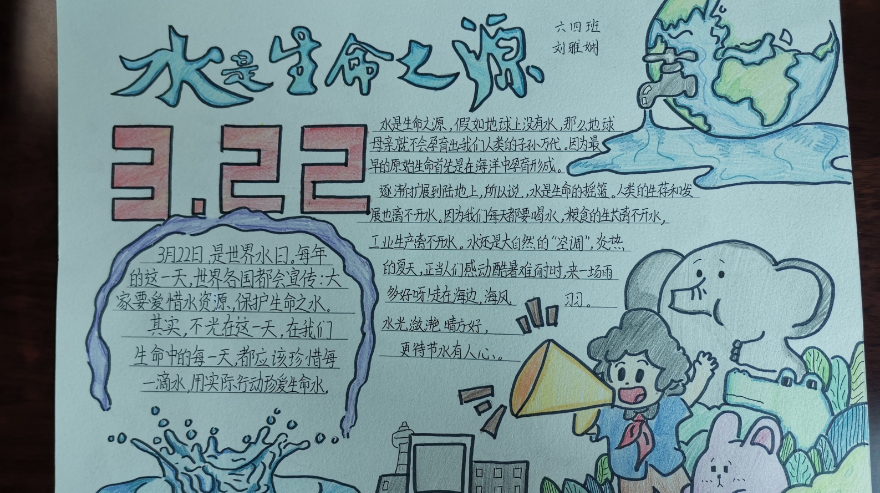 水是生命之源
六四班
刘雅娴
3.22
水是生命之源，假如地球上没有水，那么地球
母亲就不会孕育出我们人类的子孙万代。因为最
早的原始生命首先是在海洋中孕育形成。
逐渐扩展到陆地上，所以说，水是生命的摇篮。人类的生存和发
展也离不开水。因为我们每天都要喝水，粮食的生长离不开水，
工业生产离不开水。水还是大自然的“空调”，炎热
的夏天，正当人们感动酷暑难耐时，来一场雨
多好呀！走在海边，海风 习习。
水光潋滟晴方好，
更待节水有人心。
3月22日是世界水日。每年
的这一天，世界各国都会宣传：大
家要爱惜水资源，保护生命之水。
其实，不光在这一天，在我们
生命中的每一天，都应该珍惜每
一滴水，用实际行动珍爱生命水，